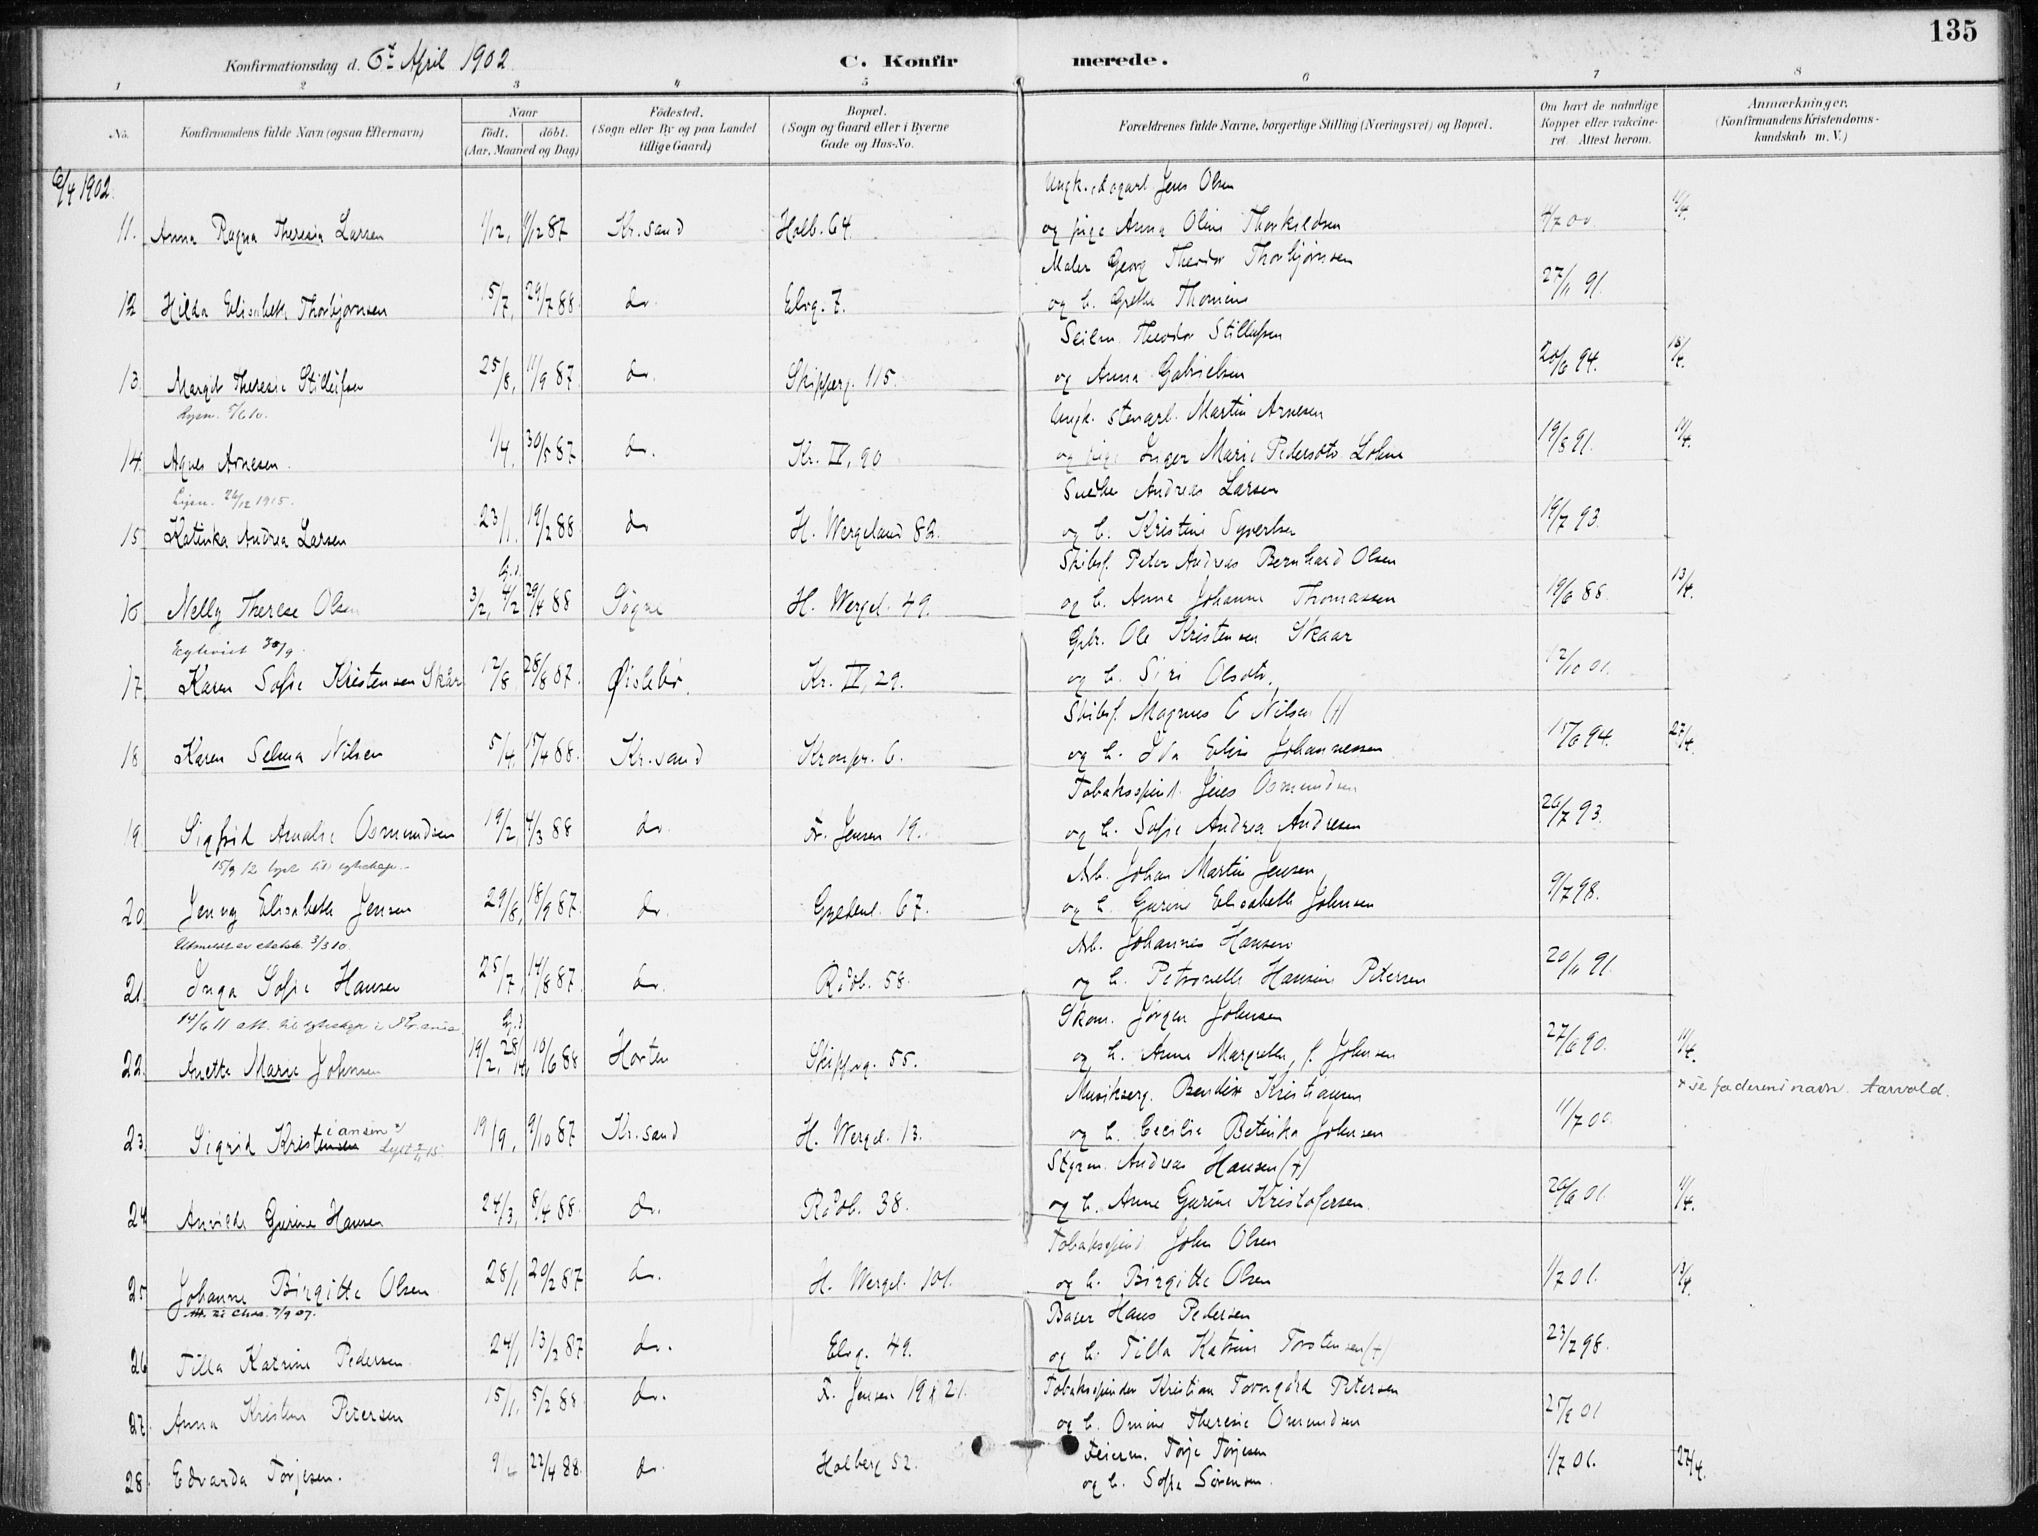 135
Konfirmationsdag d. 6te April 1902
C. Konfirmerede.
1 2 3 4 5 6 7 8
No.
Konfirmandens fulde Navn (ogsaa Efternavn)
Naar
födt. döbt.
(Aar, Maaned og Dag)
Födested.
(Sogn eller By og paa Landet
tillige Gaard)
Bopæl.
(Sogn og Gaard eller i Byerne
Gade og Hus-No.
Forældrenes fulde Navne, borgerlige Stilling (Næringsvei) og Bopæl.
Om havt de naturlige
Kopper eller vakcine-
ret. Attest herom.
Anmærkninger.
(Konfirmandens Kristendoms-
kundskab m. V.)
6/4 1902.
Ungk. Jens Olsen
11. Anna Ragna Theresia Larsen 1/12, 11/12 87 Kr.sand Holb. 64. og pige Anna Oline Thorkildsen 4/7 00
Maler Georg Theodor Thorbjørnsen
12 Hilda Elisabeth Thorbjørnsen 15/7, 29/7 88 do. Elvg. 7. og h. Grethe 27/11 91.
Seilm. Theodor Stillufsen
13. Margit Theresie Stillufsen 25/8, 11/9 87 do. Skipperg. 115. og Anna Gabrielsen 20/6 94. 15/4.
Ungk. stenarb. Martin Arnesen
14. Agnes Arnesen. 1/4, 30/5 87 do. Kr. IV, 90 og pige Inger Marie Pedersdtr Lohne 19/8 91.
Lysn. 26/12 1915.
Andreas Larsen
15. Katinka Andrea Larsen 23/1, 19/2 88 do H. Wergeland 82. og h. Kristine Syvertsen 19/7 93.
Skibsf. Peter Andreas Bernhard Olsen
16 Nelly Therese Olsen 3/2, 4/2 29/4 88 Søgne H. Wergel. 49. og h. Anna Johanne Thomassen 19/6 88. 13/4.
Gbr. Ole Kristensen Skaar
17. Karen Sofie Kristensen Skår 12/8 28/8 87. Øislebø. Kr. IV, 29. og h. Siri Olsdtr. 12/10 01.
Skibsf. Magnus C Nilsen (+)
18. Karen Selma Nilsen 5/4, 15/4 88. Kr.sand Kronpr. 6. og h. Ida Elise Johannessen 15/6 94. 27/4.
Tobaksspind. Jens Osmundsen
19. Sigfrid Amalie Osmundsen 19/2, 4/3 88 do. Fr. Jensen 19. og h. Sofie Andrea Andresen 26/7 93.
15/9 12 lyst til egteskap.
Arb. Johan Martin Jensen
20. Jenny Elisabeth Jensen 29/8, 18/9 87. do. Gyldenl. 67. og h. Gurine Elisabeth Johnsen 9/7 98.
Arb. Johannes Hansen
21. Inga Sofie Hansen 25/7, 14/8 87. do. Rådh. 58. og h. Petronelle Hansine Petersen 20/11 91.
14/6 11 att. til egteskap i Kr.ania.
Skom. Jørgen Johnsen
22. Anette Marie Johnsen 19/2, 28/, 10/6 88 Horten Skipperg. 55. og h. Anne Margrethe, f. Johnsen 27/6 90. 11/4.
Musikserg. Bendix Kristiansen + se faderens navn. Aarvold.
23. Sigrid Kristensen iansen 19/9, 9/10 87 Kr.sand H. Wergel. 13. og h. Cecilie Betinka Johnsen 11/7 00.
Styrm. Andreas Hansen (+)
24 Anvilde Gurine Hansen 24/3, 8/4 88. do. Rådh. 38. og h. Anne Gurine Kristofersen. 20/6 01. 11/4.
Tobaksspind John Olsen
25. Johanne Birgitte Olsen. 28/1, 20/2 87 do. H. Wergel. 101. og h. Birgitte Olsen 1/7 01. 13/4.
Baser Hans Pedersen
26 Tilla Katrine Pedersen. 24/1 13/2 87 do. Elvg. 49. og h. Tilla Katrine Torstensen (+) 23/7 98.
Tobaksspinder Kristian Petersen
27. Anna Kristine Petersen 15/1, 5/2 88 do. F. Jensen 19 & 21. og h. Omine Theresie Osmundsen 25/6 01
Feierm. Torje Torjesen
28. Edvarda Torjesen. 22/4 88. do. Holberg 52. og h. Sofie Sørensen. 1/7 01. 27/4.